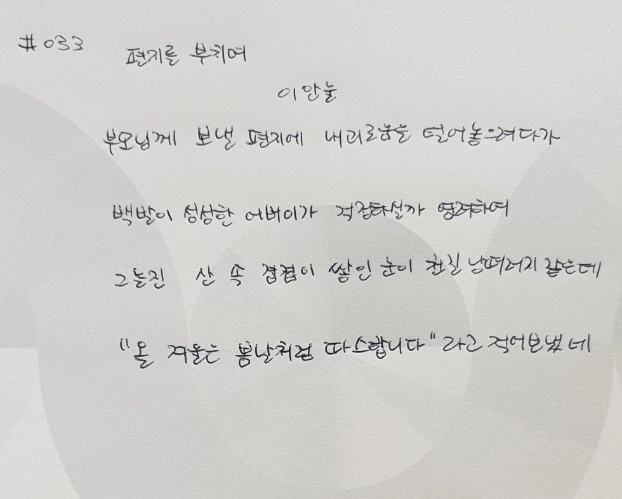 #033 편지를 부치며
이안눌
부모님께 보낼 편지에 내괴로움을 털어놓으려다가
백발이 성성한 어버이가 걱정하실까 염려하여
그늘진 산 속 겹겹이 쌓인 눈이 천길 낭떠러지 같은데
"올 겨울은 봄날처럼 따스합니다"라고 적어보냈네